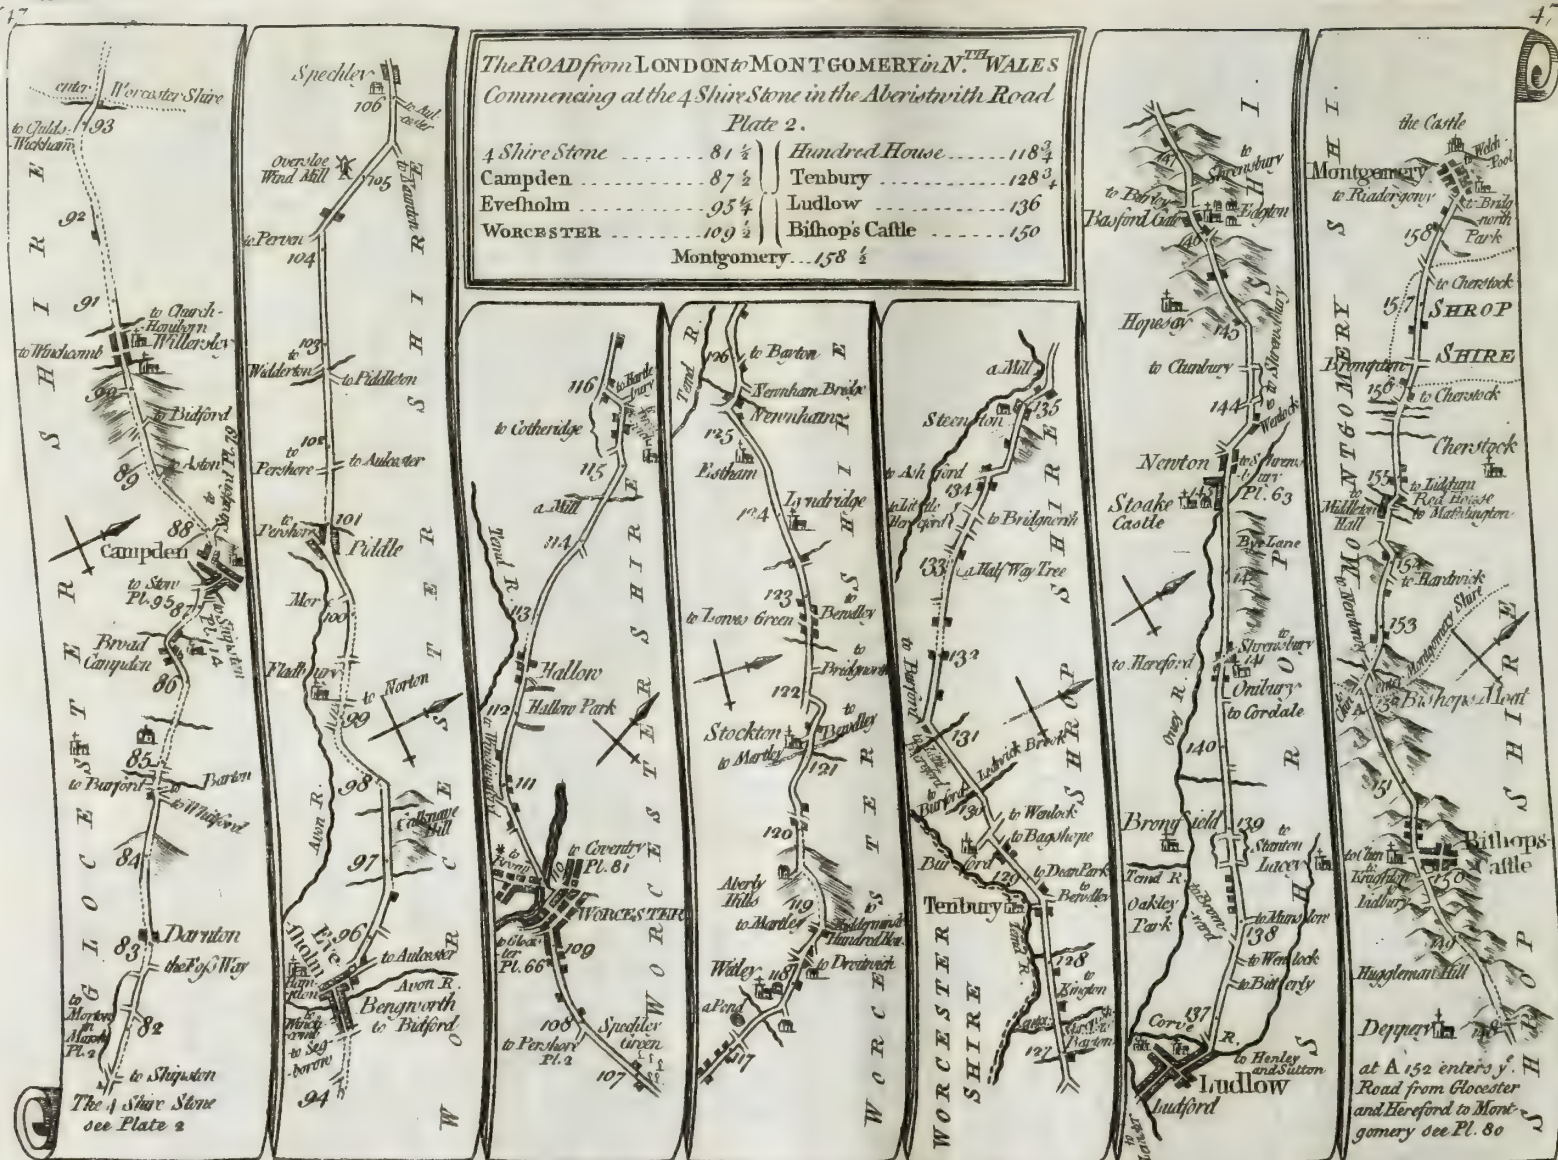 47
47
The ROAD from LONDON to MONTGOMERY in N.TH WALES
Commencing at the 4 Shire Stone in the Aberistwith Road
Plate 2.
4 Shire Stone ........ 81 ½
Campden ........ 87 ½
Evesholm ........ 95 ¼
WORCESTER ........ 109 ½
Hundred House ........ 118 ¾
Tenbury ........ 128 ¾
Ludlow ........ 136
Bishop's Castle ........ 150
Montgomery ... 158 ½
GLOCESTER SHIRE
enter Worcester Shire
to Childs Wickham
93
92
91
to Church Honiborn
Willersley
to Winchcomb
90
to Bidford
89
to Aston
88
Campden
to Stow
Pl. 95
87
to Shipston
Pl. 14
Broad
Campden
86
85
to Burford
Barton
to Whitford
84
Darnton
83
the Foss Way
to
Morton
in
Marsh
Pl. 2
82
to Shipston
The 4 Shire Stone
see Plate 2
WORCESTER SHIRE
Spechley
106
to Aulcester
Oversloe
Wind Mill
105
to Taunton
to Perven
104
103
to
Widderton
to Piddleton
102
to
Pershore
to Aulcester
101
to
Pershore
Piddle
Mor
100
Fladbury
to Norton
99
98
Avon R.
97
96
Evesholm
to Aulcester
Avon R.
Bengworth
to Bidford
94
WORCESTER SHIRE
116
to Cotheridge
115
a Mill
114
Temd R.
113
Hallow
112
Hallow Park
111
110
to Coventry
Pl. 81
WORCESTER
109
Pl. 66
108
Spechley
Green
to Pershore
Pl. 2
107
WORCESTER SHIRE
Temd R.
126
to Barton
Newnham Bridge
Newnham
125
Estham
124
Lyndridge
123
to Lowes Green
to
Bewdley
to
Bridgnorth
122
to
Bewdley
Stockton
to Martley
121
120
Aberly
Hills
119
to Martley
to
Kidderminster
Hundred House
to Droitwich
118
Witley
a Pond
117
WORCESTER
SHIRE
SHROP SHIRE
a Mill
135
Steenton
to Ashford
134
to Little
Hereford
to Bridgnorth
133
a Half Way Tree
132
to Burford
131
to Little
Hereford
Ledwick Brook
to
Burford
130
to Wenlock
to Bagshope
Burford
129
to Dean Park
to
Bewdley
Tenbury
Temd R.
128
to
Kington
127
SHROP SHIRE
to
Shrewsbury
147
Basford Gate
Edgton
146
Hopesay
145
to Clunbury
to Shrewsbury
144
Wenlock
Newton
to Shrewsbury
Pl. 63
Stoake
Castle
143
Bye Lane
142
Shrewsbury
141
to Hereford
Onibury
to Cordale
Oney R.
140
Bromfield
139
to
Stanton
Lacey
Temd R.
Oakley
Park
to Brompard
to Munslow
138
to Wenlock
to Bitterly
137
Corve R.
to Henley
and Sutton
Ludlow
Ludford
MONTGOMERY SHI.
the Castle
to Welch
Pool
Montgomery
to Riadergowy
to Bridgnorth
Park
158
to Cherstock
157
SHROP
SHIRE
Brompton
156
to Cherstock
Cherstock
155
to Lidum
Red House
to
Middleton
Hall
to Mathlington
154
to Hardwick
153
enter Montgomery Shire
152
Bishops Moat
151
Bishops-
Castle
150
to Clun
to
Knighton
Lidbury
149
Huggleman Hill
Deppery
148
SHROP SHIRE
at A 152 enters ye
Road from Glocester
and Hereford to Mont-
gomery see Pl. 80